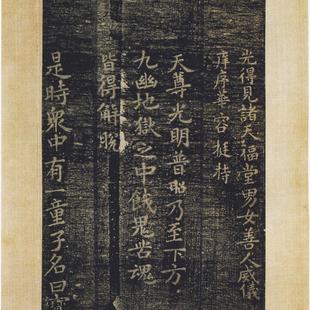 光得見諸天福堂男女善人威儀
庠序華容挺特
天尊光明普照乃至下方
九幽地獄之中餓鬼苦魂
皆得解脫
是時衆中有一童子名曰